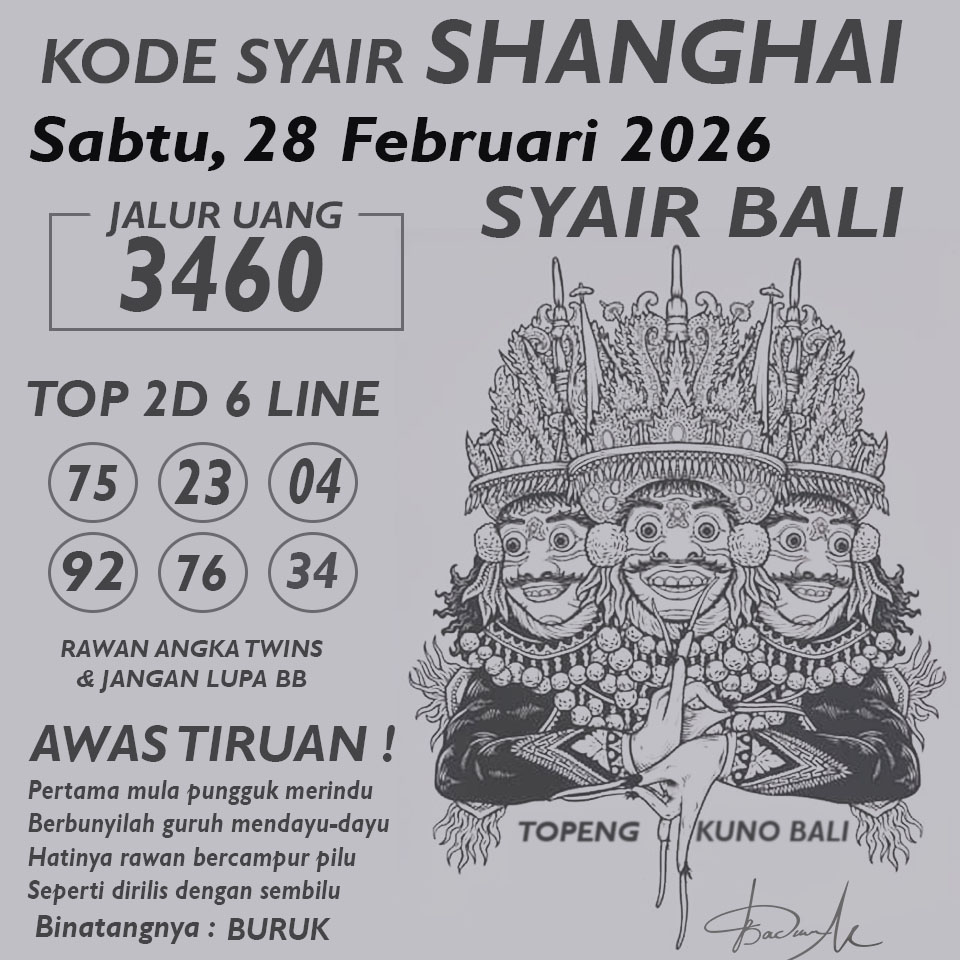 KODE SYAIR SHANGHAI
Sabtu, 28 Februari 2026
SYAIR BALI
JALUR UANG
3460
TOP 2D 6 LINE
75 23 04
92 76 34
RAWAN ANGKA TWINS
& JANGAN LUPA BB
AWAS TIRUAN !
Pertama mula pungguk merindu
Berbunyilah guruh mendayu-dayu
Hatinya rawan bercampur pilu
Seperti dirilis dengan sembilu
Binatangnya : BURUK
TOPENG KUNO BALI